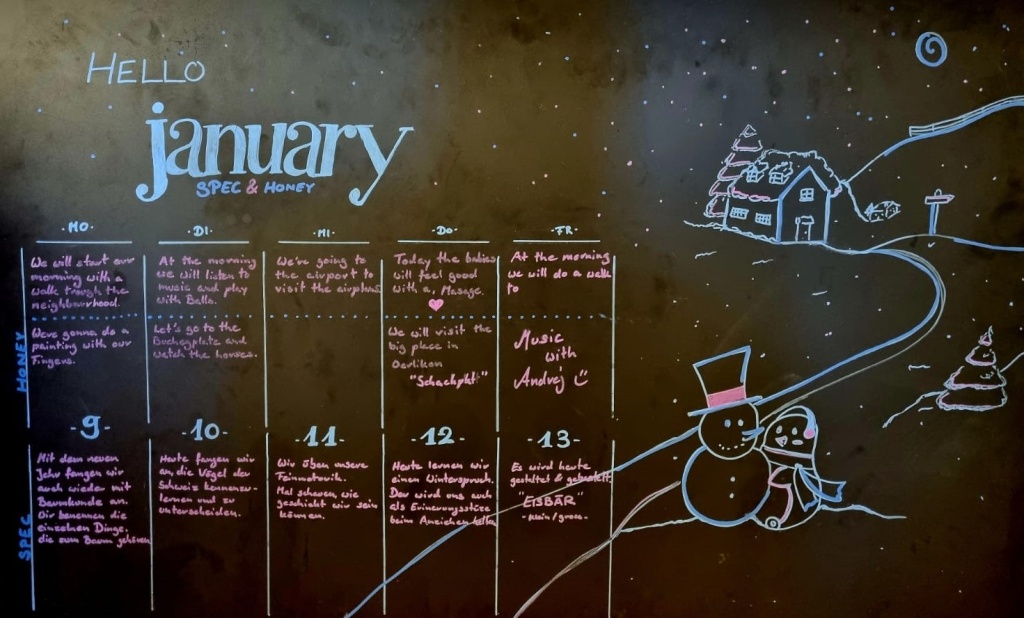 HELLO
january
SPEC & HONEY
-MO- -DI- -MI- -DO- -FR-
HONEY
We will start our
morning with a
walk trough the
neighbourhood.
We're gonna do a
painting with our
Fingers.
At the morning
we will listen to
music and play
with Balls.
Let's go to the
and
watch the horses.
We're going to
the airport to
visit the airplans
Today the babies
will feel good
with a, Masage.
We will visit the
big place in
Oerlikon
At the morning
we will do a walk
to
Music
with
Andrej
SPEC
-9- -10- -11- -12- -13-
Mit dem neuen
Jahr fangen wir
auch wieder mit
Baumkunde an.
Wir benennen die
einzelnen Dinge,
die zum Baum gehören
Heute fangen wir
an die Vögel der
Schweiz kennenzu-
lernen und zu
unterscheiden.
Wir üben unsere
Feinmotorik.
Mal schauen wie
geschickt wir sein
können.
Heute lernen wir
einen Winterspruch.
Der wird uns auch
als Erinnerungsstütze
beim Anziehen helfen
Es wird heute
gestaltet & gebastelt.
"EISBÄR"
-klein/gross-